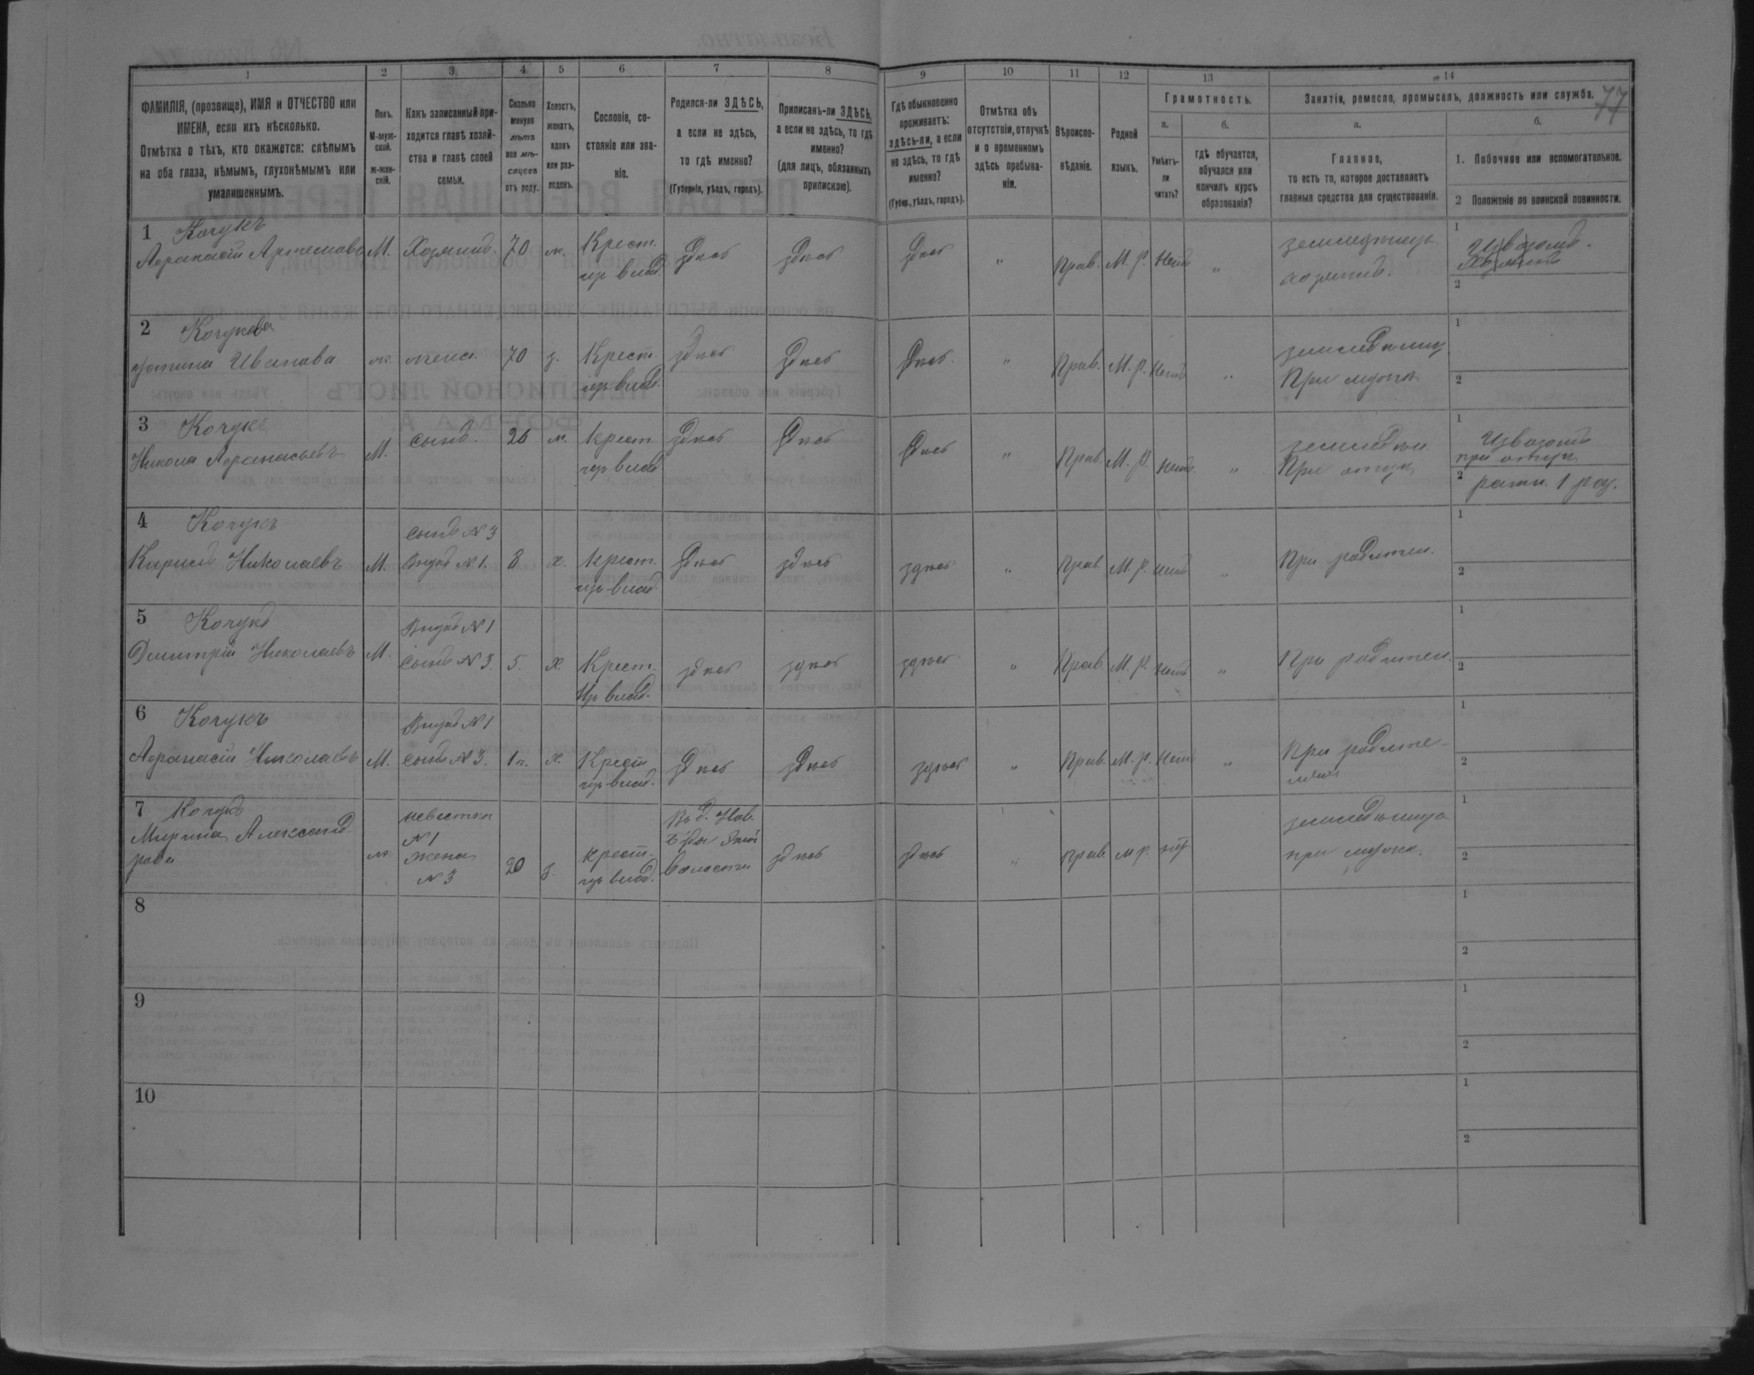 77
1 2 3 4 5 6 7 8 9 10 11 12 13 14
ФАМИЛІЯ, (прозвище), ИМЯ и ОТЧЕСТВО или
ИМЕНА, если ихъ нѣсколько.
Отмѣтка о тѣхъ, кто окажется: слѣпымъ
на оба глаза, нѣмымъ, глухонѣмымъ или
умалишеннымъ.
Полъ.
М-муж-
ской.
ж-жен-
скій.
Какъ записанный при-
ходится главѣ хозяй-
ства и главѣ своей
семьи.
Сколько
минуло
лѣтъ
или мѣ-
сяцевъ
отъ роду.
Холостъ,
женатъ,
вдовъ
или раз-
веденъ.
Сословіе, со-
стояніе или зва-
ніе.
Родился-ли ЗДѢСЬ,
а если не здѣсь,
то гдѣ именно?
(Губернія, уѣздъ, городъ).
Приписанъ-ли ЗДѢСЬ,
а если не здѣсь, то гдѣ
именно?
(для лицъ, обязанныхъ
припискою).
Гдѣ обыкновенно
проживаетъ:
здѣсь-ли, а если
не здѣсь, то гдѣ
именно?
(Губер., уѣздъ, городъ).
Отмѣтка объ
отсутствіи, отлучкѣ
и о временномъ
здѣсь пребыва-
ніи.
Вѣроиспо-
вѣданіе.
Родной
языкъ.
Грамотность.
а.
Умѣетъ-
ли
читать?
б.
гдѣ обучается,
обучался или
кончилъ курсъ
образованія?
Занятіе, ремесло, промыселъ, должность или служба.
а.
Главное,
то есть то, которое доставляетъ
главныя средства для существованія.
б.
1. Побочное или вспомогательное.
2 Положеніе по воинской повинности.
1 Кочукъ
Афанасій Артемовъ М. Хозяинъ. 70 ж. Крест. здѣсь здѣсь здѣсь " Прав. М. р. Нѣтъ " земледѣлецъ Извозомъ.
изъ влад. хозяинъ.
1
2
2 Кочукова
Иванова ж. жена 70 з. Крест. здѣсь здѣсь здѣсь " Прав. М. р. Нѣтъ "
изъ влад. При мужѣ
1
2
3 Кочукъ
Никола Афанасьевъ М. сынъ. 26 ж. Крест. здѣсь здѣсь здѣсь " Прав. М. р. Нѣтъ " Извозомъ
изъ влад. При отцѣ при отцѣ
1
2 ратн. 1 раз.
4 Кочукъ
сынъ N 3
Кирилъ Николаевъ М. Внукъ N 1. 8 х. Крест. здѣсь здѣсь здѣсь " Прав М. р. Нѣтъ " При родител.
изъ влад
1
2
5 Кочукъ
Внукъ N 1
Дмитрій Николаевъ М. сынъ N 3. 5. х Крест. здѣсь здѣсь здѣсь " Прав. М. р. Нѣтъ " При родител.
Изъ влад.
1
2
6 Кочукъ
Внукъ N 1
Афанасій Николаевъ М. сынъ N 3. 1 г. х. Крест. здѣсь здѣсь здѣсь " Прав. М. р. Нѣтъ " При родите-
изъ влад. ляхъ
1
2
7 Кочукъ невестка земледѣлица
Марина Александ N 1
рова ж жена 20 з. крест. волости здѣсь здѣсь " прав м р. нѣт при мужѣ.
N 3 изъ влад.
1
2
8
1
2
9
1
2
10
1
2